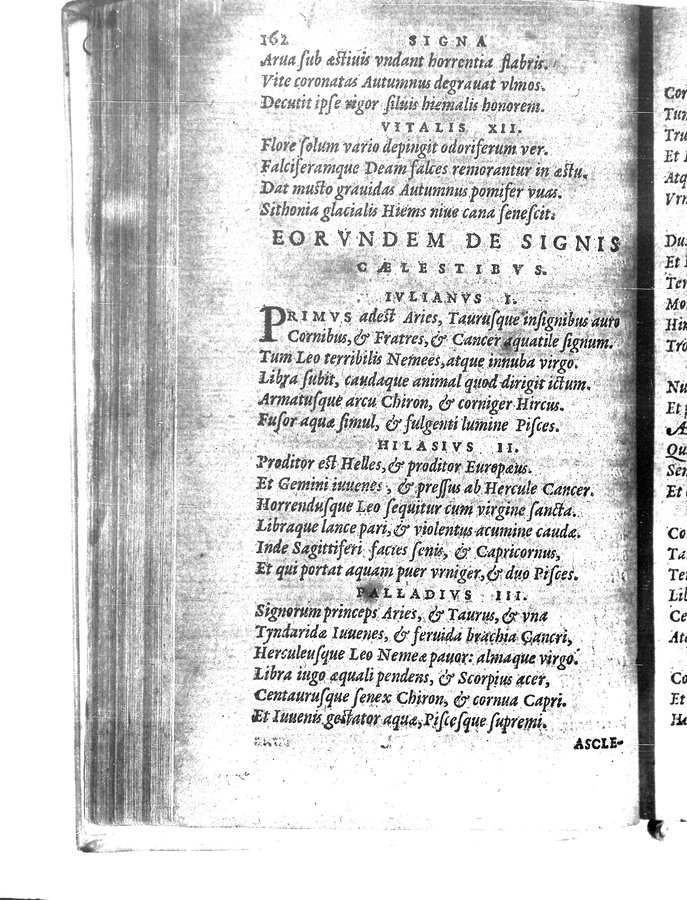 162 SIGNA
Arua ſub æſtiuis vndant horrentia flabris.
Vite coronatas Autumnus degrauat vlmos.
Decutit ipſe rigor ſiluis hiemalis honorem.
VITALIS XII.
Flore ſolum vario depingit odoriferum ver.
Falciferamque Deam falces remorantur in æſtu.
Dat muſto grauidas Autumnus pomifer vuas.
Sithonia glacialis Hiems niue cana ſeneſcit.
EORVNDEM DE SIGNIS
CÆLESTIBVS.
IVLIANVS I.
PRIMVS adeſt Aries, Tauruſque inſignibus auro
Cornibus, & Fratres, & Cancer aquatile ſignum.
Tum Leo terribilis Nemees, atque innuba virgo.
Libra ſubit, caudaque animal quod dirigit ictum.
Armatuſque arcu Chiron, & corniger Hircus.
Fuſor aquæ ſimul, & fulgenti lumine Piſces.
HILASIVS II.
Proditor eſt Helles, & proditor Europæus.
Et Gemini iuuenes, & preſſus ab Hercule Cancer.
Horrenduſque Leo ſequitur cum virgine ſancta.
Libraque lance pari, & violentus acumine caudæ.
Inde Sagittiferi facies ſenis, & Capricornus,
Et qui portat aquam puer vrniger, & duo Piſces.
PALLADIVS III.
Signorum princeps Aries, & Taurus, & vna
Tyndaridæ Iuuenes, & feruida brachia Cancri,
Herculeuſque Leo Nemeæ pauor: almaque virgo.
Libra iugo æquali pendens, & Scorpius acer,
Centauruſque ſenex Chiron, & cornua Capri.
Et Iuuenis geſtator aquæ, Piſceſque ſupremi.
ASCLE-